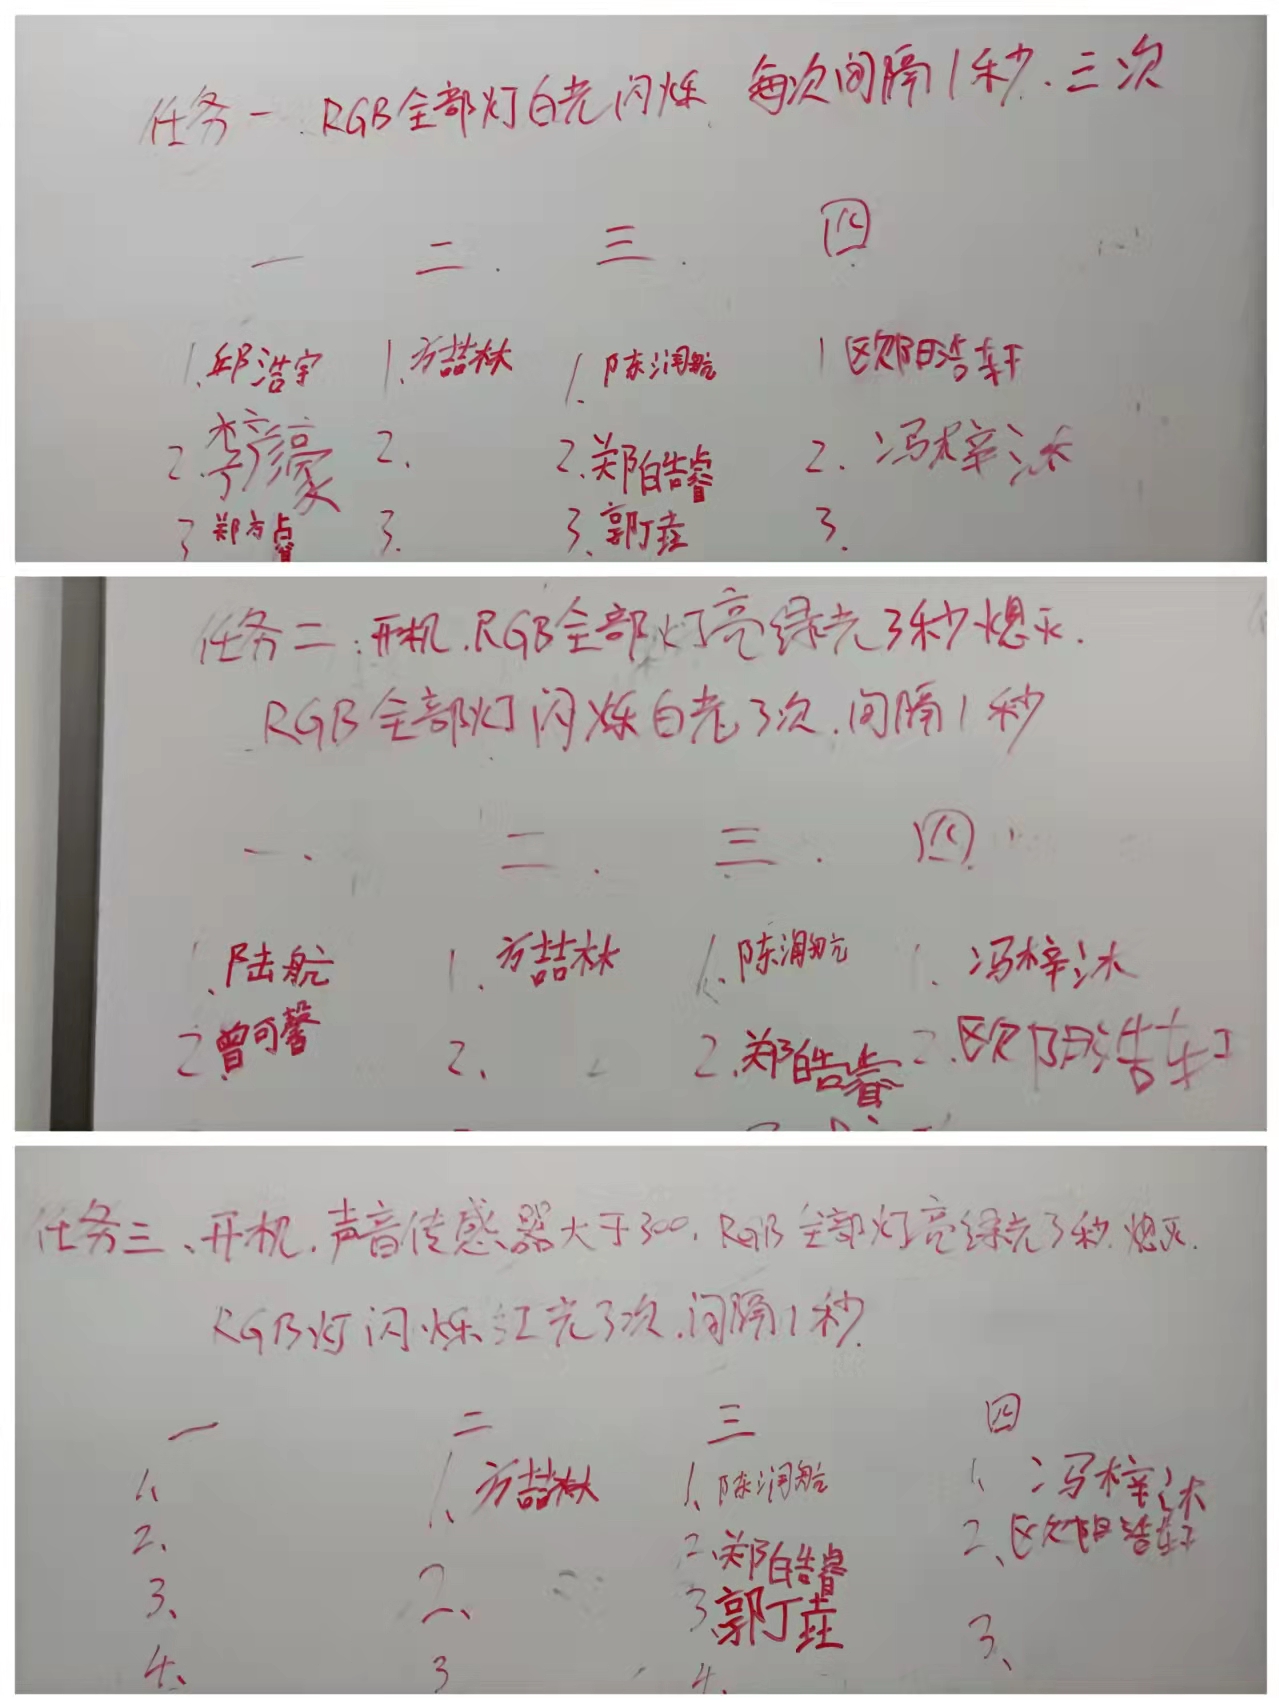 任务一.RGB全部灯白光闪烁 每次间隔1秒.三次
一 二. 三. 四
1.邱浩宇 1.方喆林 1.陈润航 1 欧阳浩轩
2.李濠 2. 2.郑皓睿 2. 冯梓沐
3 郑方睿 3. 3.郭丁垚 3.
任务二:开机.RGB全部灯亮绿光3秒熄灭.
RGB全部灯闪烁白光3次.间隔1秒
一. 二. 三. 四
1.陆航 1.方喆林 1.陈润航 1. 冯梓沐
2.曾可馨 2. 2.郑皓睿 2.欧阳浩轩
任务三、开机.声音传感器大于300,RGB全部灯亮绿光3秒.熄灭.
RGB灯闪烁红光3次.间隔1秒.
一 二 三 四
1、 1、方喆林 1、陈润航 1、冯梓沐
2. 2、 2.郑皓睿 2、欧阳浩轩
3、 3 3.郭丁垚 3、
4、 4.